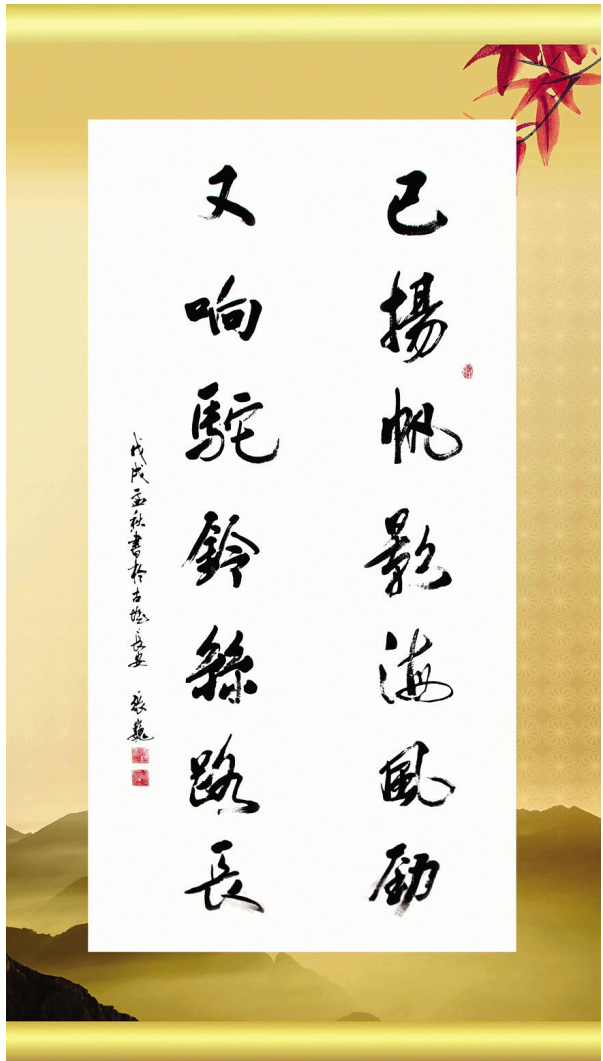 已揚帆影海風勁
又响駝鈴絲路長
戊戌孟秋書於古城長安 張巍